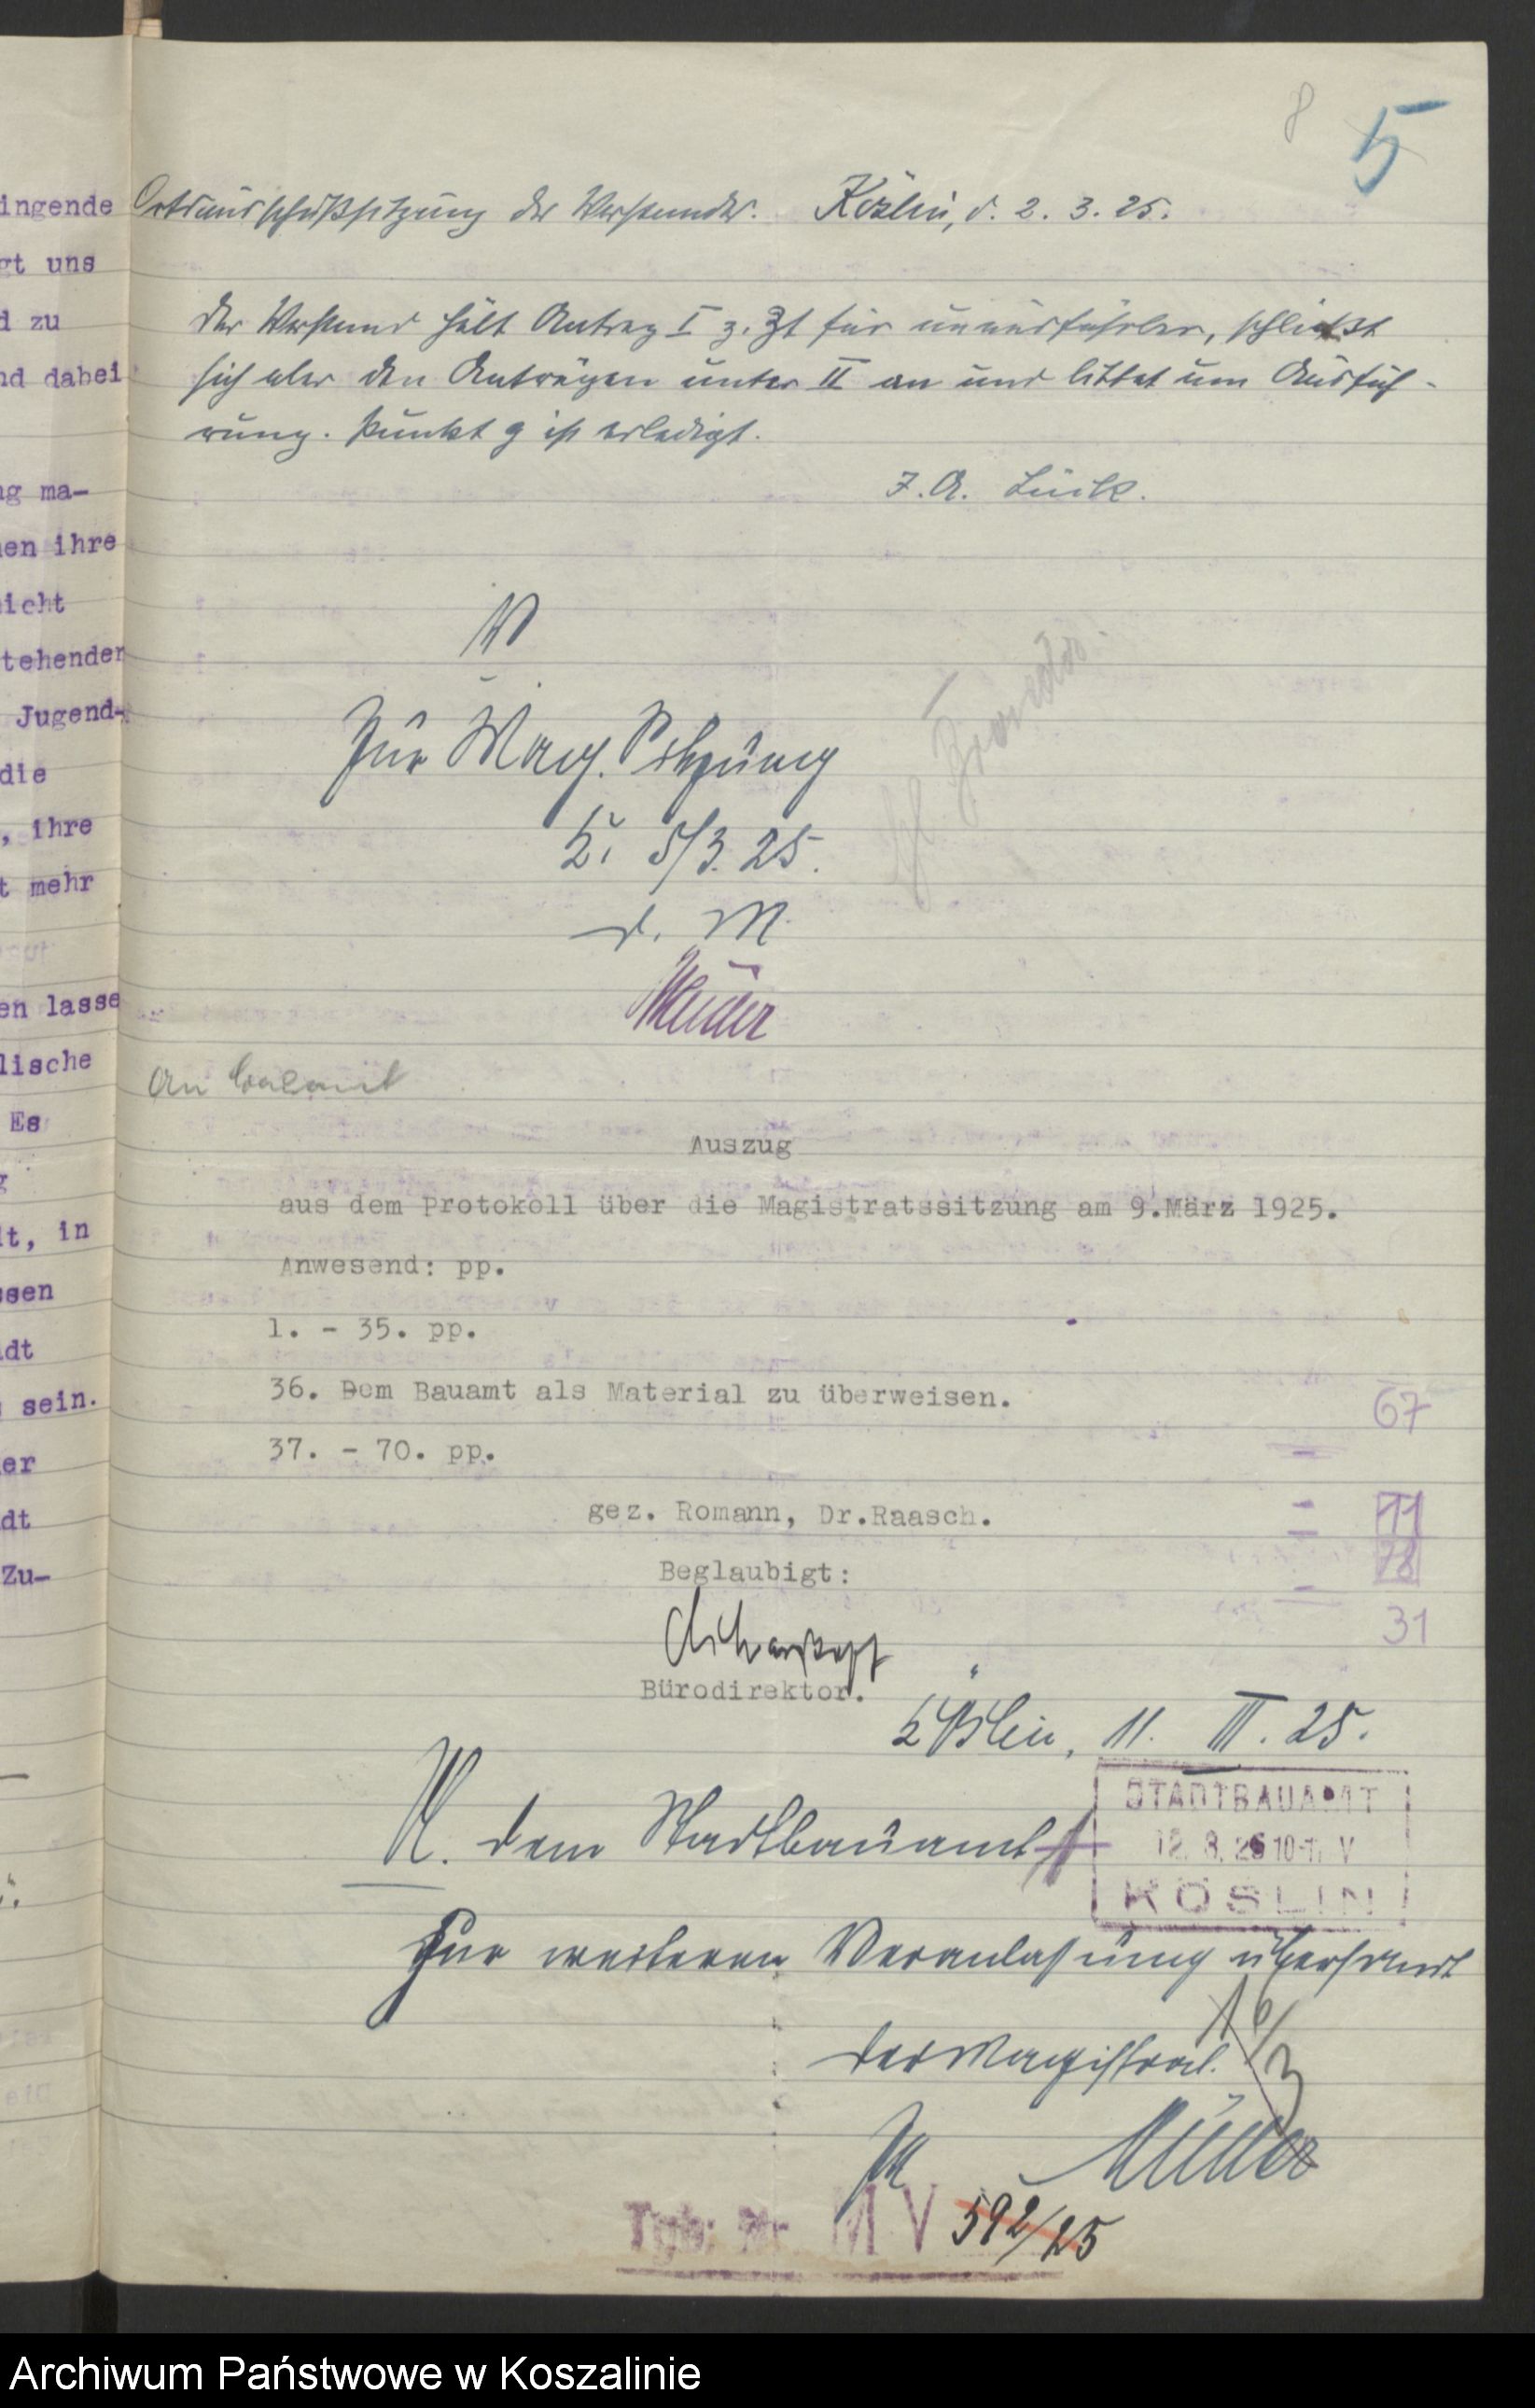 8 5
Ortsausschußsitzung der Verbände. Köslin, d. 2. 3. 25.
Der Vorstand hält Antrag I z. Zt für unausführbar, schließt
sich aber den Anträgen unter II an und bittet um Ausfüh-
rung. Punkt g ist erledigt.
I. A. Lück.
Zur Mag. Sitzung
K. 5/3. 25.
d. M.
An Bauamt
Auszug
aus dem Protokoll über die Magistratssitzung am 9.März 1925.
Anwesend: pp.
1. - 35. pp.
36. Dem Bauamt als Material zu überweisen.
67
37. - 70. pp.
gez. Romann, Dr.Raasch.
11
Beglaubigt:
78
31
Bürodirektor.
Köslin, 11. III. 25.
STADTBAUAMT
12. 3. 25 10-11 V
KÖSLIN
U. dem Stadtbauamt
zur weiteren Veranlassung übersandt
16/3
Der Magistrat.
Müller
Tgb. Nr. M V 592/25
ingende
gt uns
d zu
nd dabei
ng ma-
en ihre
icht
tehender
Jugend-
die
, ihre
t mehr
en lasse
lische
Es
g
lt, in
ssen
dt
sein.
er
dt
Zu-
Archiwum Państwowe w Koszalinie